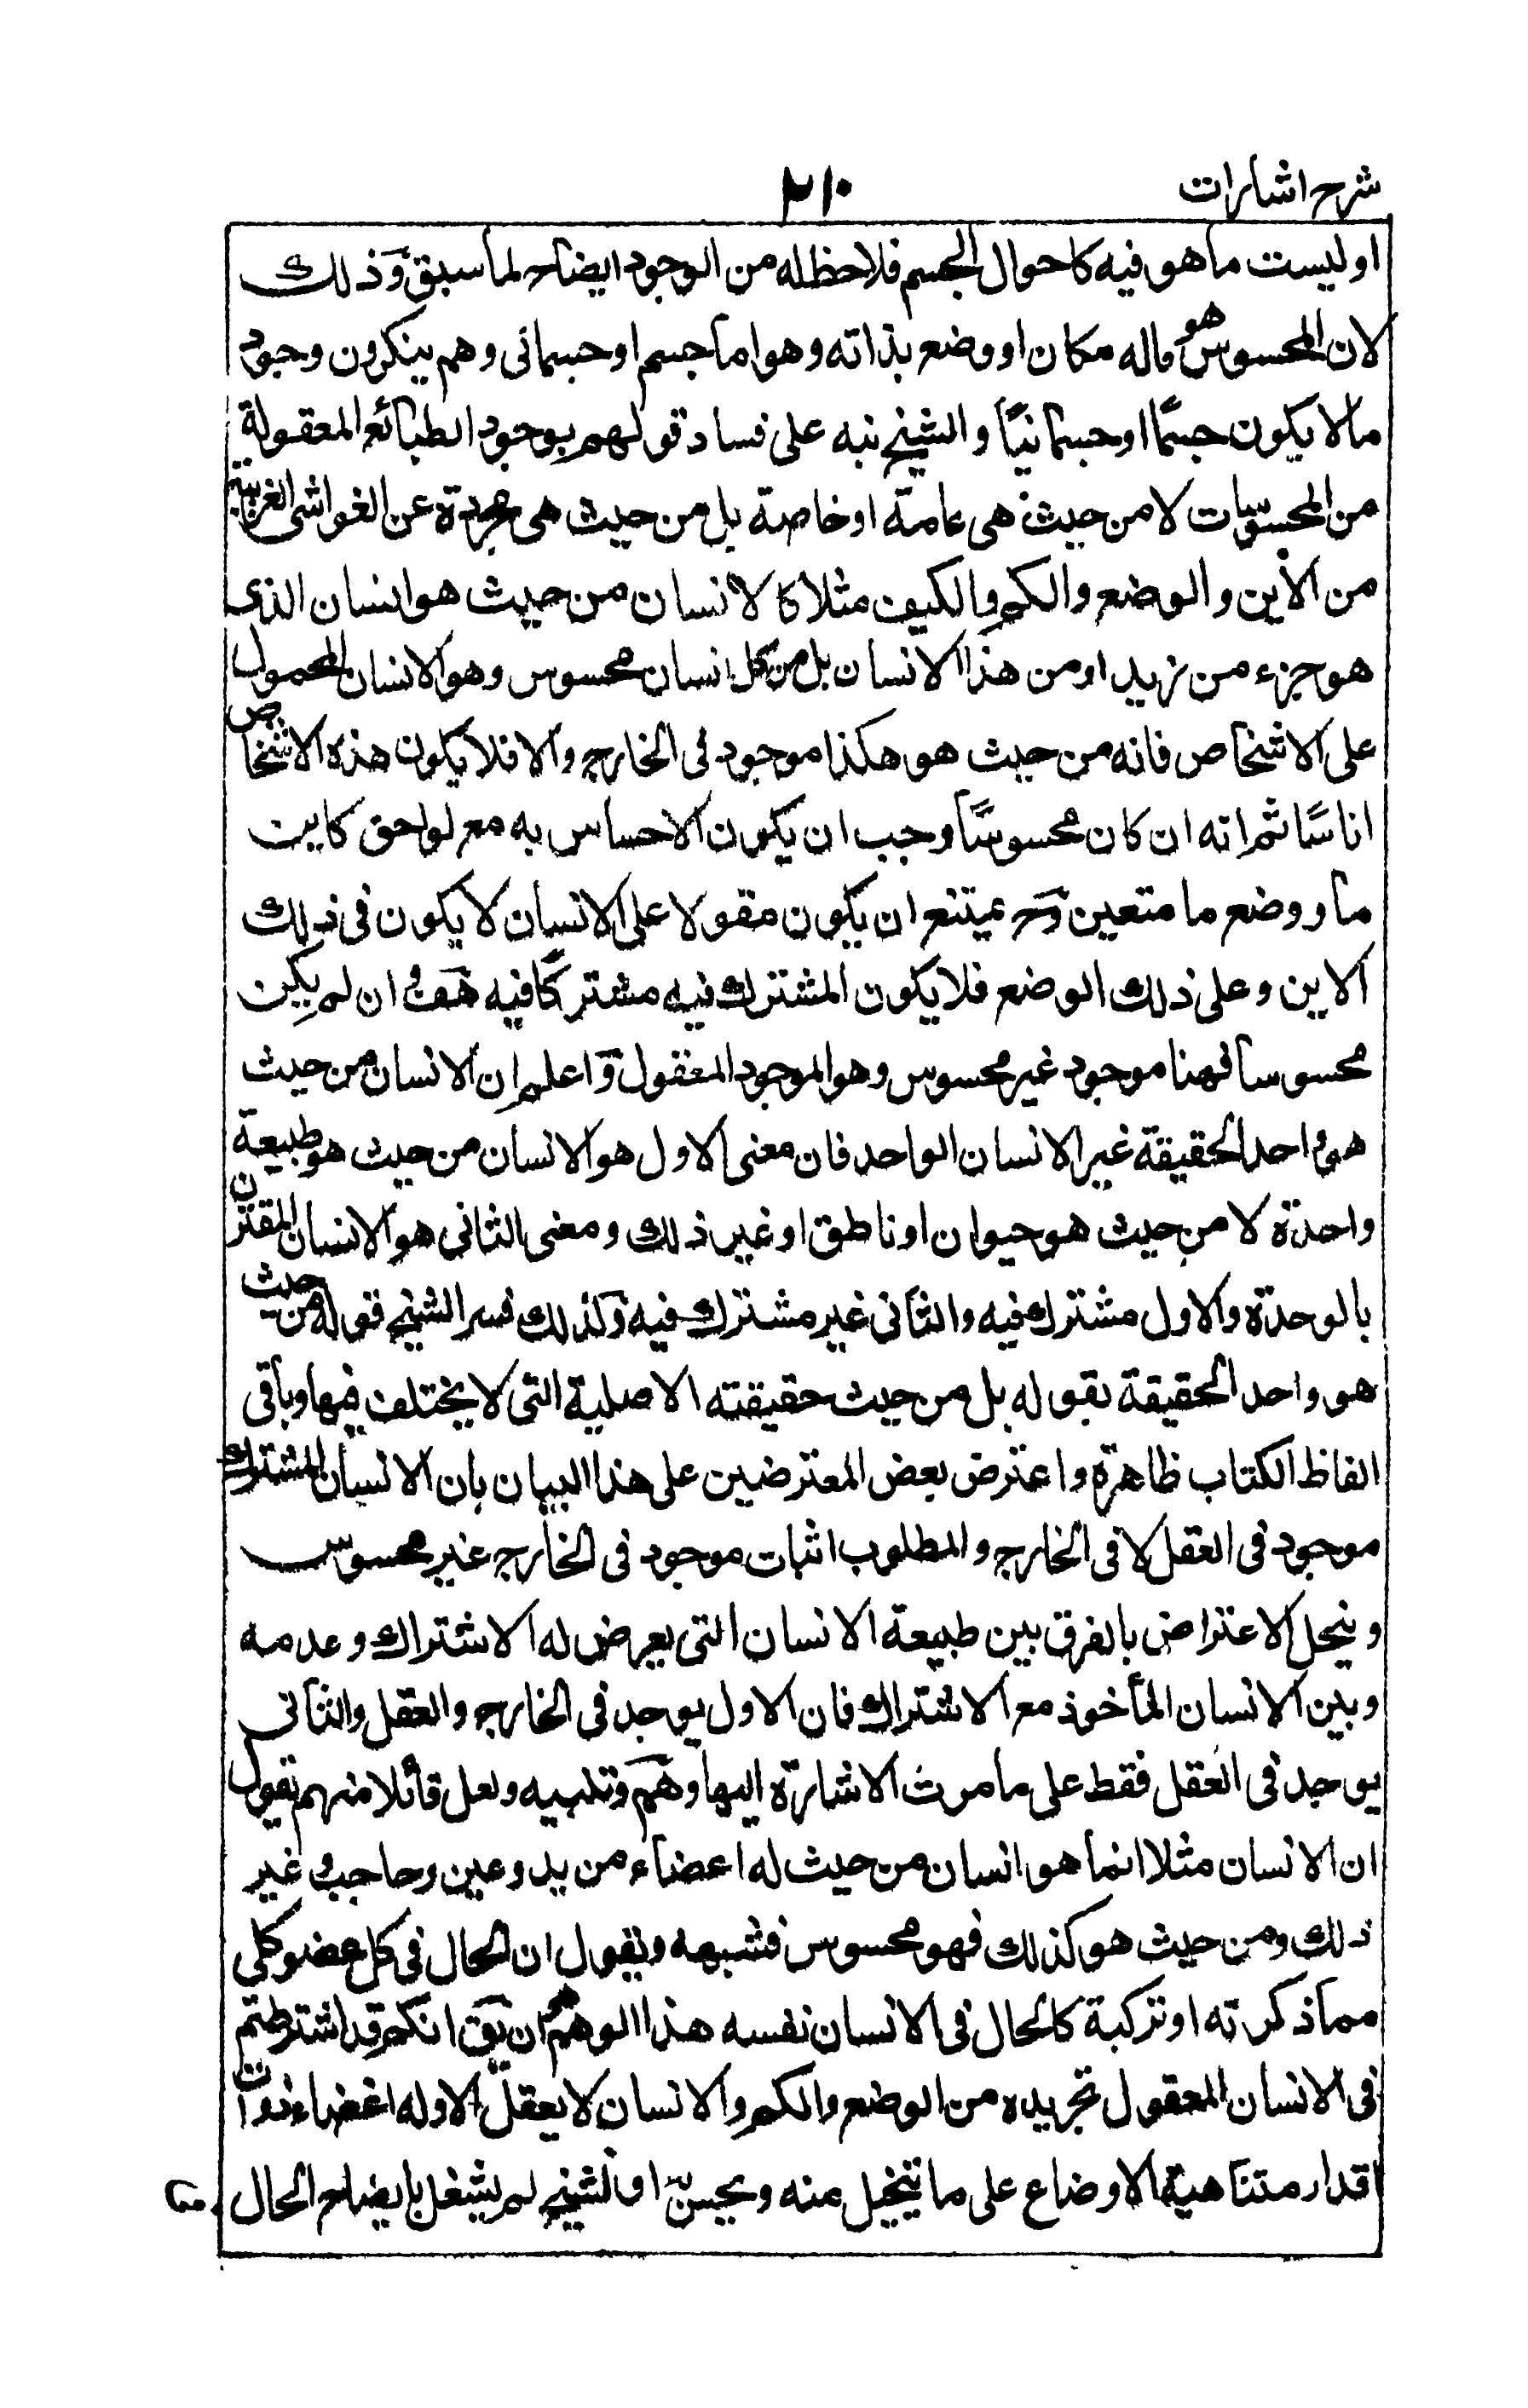 شرح اشارات
٢١٠
او ليست ما هو فيه كاحوال الجسم فلاحظ له من الوجود ايضاح لما سبق وذلك
لان المحسوس هو ماله مكان او وضع بذاته وهو اما جسم او جسمانى وهم ينكرون وجود
ما لا يكون جسمًا او جسمانيًا والشيخ نبه على فساد قولهم بوجود الطبائع المعقولة
من المحسوسات لا من حيث هى عامة او خاصة بل من حيث هى مجردة عن الغواشى الغريبة
من الأين والوضع والكم والكيف مثلا كالانسان من حيث هو انسان الذى
هو جزء من زيد او من هذا الانسان بل من كل انسان محسوس وهو الانسان المحمول
على الاشخاص فانه من حيث هو هكذا موجود فى الخارج والا فلا يكون هذه الاشخاص
اناسًا ثم انه ان كان محسوسًا وجب ان يكون الاحساس به مع لواحق كاين
ما ووضع ما متعين وح يمتنع ان يكون مقولا على الانسان لا يكون فى ذلك
الاين وعلى ذلك الوضع فلا يكون المشترك فيه مشتركًا فيه هف وان لم يكن
محسوسا فهنا موجود غير محسوس وهو الموجود المعقول واعلم ان الانسان من حيث
هو احد الحقيقة غير الانسان الواحد فان معنى الاول هو الانسان من حيث هو طبيعة
واحدة لا من حيث هو حيوان او ناطق او غير ذلك ومعنى الثانى هو الانسان المقترن
بالوحدة والاول مشترك فيه والثانى غير مشترك فيه وكذلك فسر الشيخ قوله من حيث
هو واحد الحقيقة بقوله بل من حيث حقيقته الاصلية التى لا يختلف فيها وباقى
الفاظ الكتاب ظاهرة واعترض بعض المعترضين على هذا البيان بان الانسان المشترك
موجود فى العقل لا فى الخارج والمطلوب اثبات موجود فى الخارج غير محسوس
وينحل الاعتراض بالفرق بين طبيعة الانسان التى يعرض له الاشتراك وعدمه
وبين الانسان المأخوذ مع الاشتراك فان الاول يوجد فى الخارج والعقل والثانى
يوجد فى العقل فقط على ما مرت الاشارة اليها وهم وتنبيه ولعل قائلا منهم يقول
ان الانسان مثلا انما هو انسان من حيث له اعضاء من يد وعين وحاجب وغير
ذلك ومن حيث هو كذلك فهو محسوس فنبهه ونقول ان الحال فى كل عضو كلى
مما ذكرته او تركبة كالحال فى الانسان نفسه هذا الوهم ان يق انكم قد اشترطتم
فى الانسان المعقول تجريده من الوضع والكم والانسان لا يعقل الا وله اعضاء ذوات
اقدار متناهية الاوضاع على ما يتخيل منه ويحس والشيخ لم يشغل بايضاح الحال